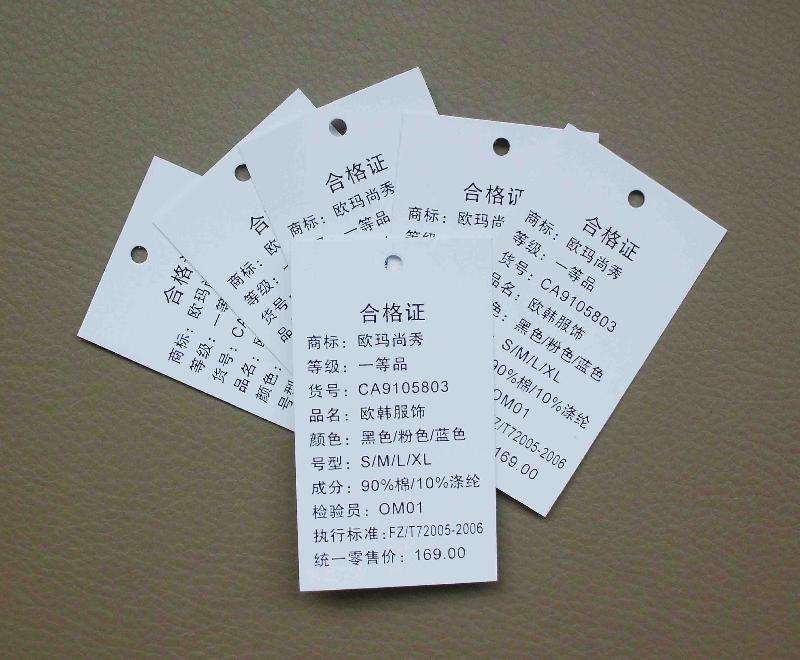 合格证
商标：欧玛尚秀
等级：一等品
货号：CA9105803
品名：欧韩服饰
颜色：黑色/粉色/蓝色
号型：S/M/L/XL
成分：90%棉/10%涤纶
检验员：OM01
执行标准:FZ/T72005-2006
统一零售价：169.00
合格
商标：欧玛
等级：一等
货号：CA
品名：
颜色：
号型
合
商标：欧
等级：一
货号
品
合格证
商标：欧玛尚秀
一等品
合格证
商标：欧玛尚
等级
合格证
商标：欧玛尚秀
等级：一等品
货号：CA9105803
品名：欧韩服饰
色：黑色/粉色/蓝色
S/M/L/XL
90%棉/10%涤纶
OM01
Z/T72005-2006
169.00